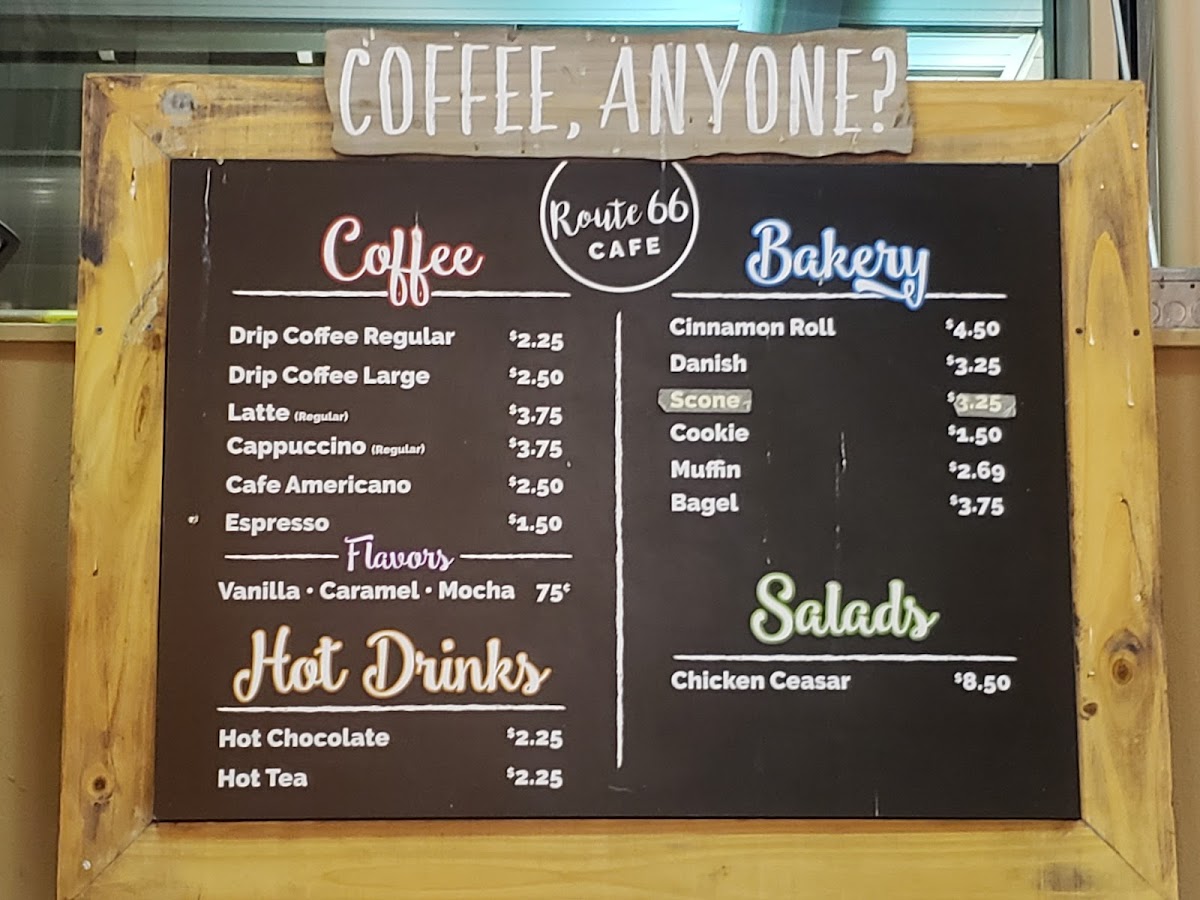 COFFEE, ANYONE?
Route 66
CAFE
Coffee
Drip Coffee Regular $2.25
Drip Coffee Large $2.50
Latte (Regular) $3.75
Cappuccino (Regular) $3.75
Cafe Americano $2.50
Espresso $1.50
Flavors
Vanilla • Caramel • Mocha 75¢
Hot Drinks
Hot Chocolate $2.25
Hot Tea $2.25
Bakery
Cinnamon Roll $4.50
Danish $3.25
Scone $3.25
Cookie $1.50
Muffin $2.69
Bagel $3.75
Salads
Chicken Ceasar $8.50